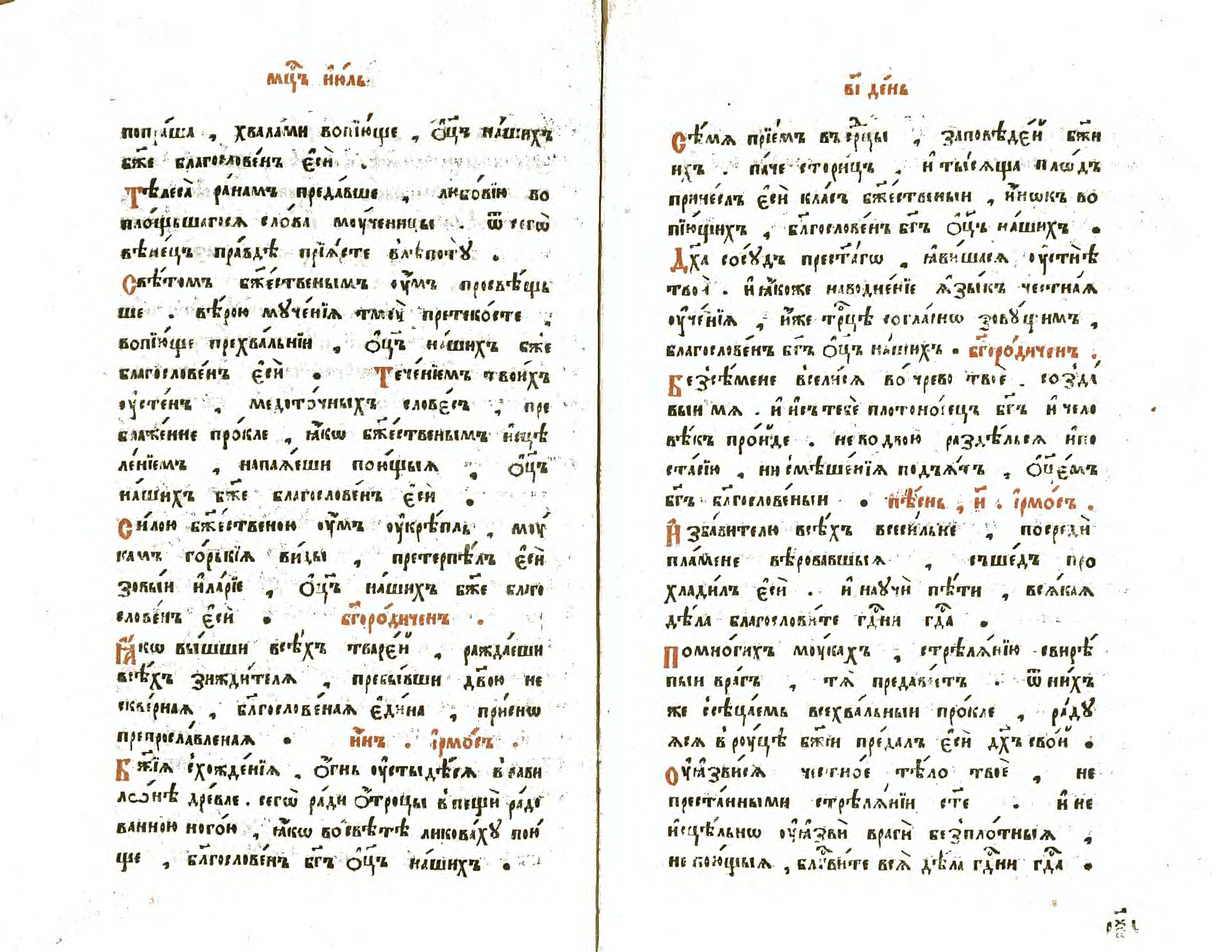 мцⷭ҇ъ і҆ю́ль
попра́ша , хвала́ми вопїю́ще , ѻ҆ц҃ъ на́шихъ
бж҃е благослове́нъ є҆сѝ .
Тѣлеса̀ ра́намъ преда́вше , любо́вїю во
площьшагося сло́ва мꙋ́ченицы . ѿ сегѡ̀
вѣне́цъ пра́вдѣ прїѧ́сте влѣ́потꙋ .
Свѣ́томъ бж҃е́ственымъ оу҆́мъ просвѣ́щь
ше . вѣ́рою мꙋче́нїѧ тмоу̀ претеко́сте ,
вопїю́ще прехва́льнїи , ѻ҆ц҃ъ на́шихъ бж҃е
благослове́нъ є҆сѝ . Тече́нїемъ твои́хъ
оу҆сте́нъ , медото́чныхъ слове́съ , пре
блаже́нне про́кле , ꙗ҆́кѡ бж҃е́ственымъ и҆сцѣ
ле́нїемъ , напаѧ́еши пою́щыѧ , ѻ҆ц҃ъ
на́шихъ бж҃е благослове́нъ є҆сѝ .
Си́лою бж҃е́ственою оу҆́мъ оу҆крѣ́пль , моу́
камъ го́рькїѧ ви́ды , претерпѣ́лъ є҆сѝ
зовы́й и҆ла́рїе , ѻ҆ц҃ъ на́шихъ бж҃е благо
слове́нъ є҆сѝ . бг҃оро́диченъ .
Ꙗ҆́кѡ вы́шши всѣ́хъ тваре́й , ражда́еши
всѣ́хъ зижди́телѧ , пребы́вши дв҃ою не
скве́рнаѧ , бл҃гослове́наѧ є҆ди́на , при́снѡ
препросла́вленаѧ . и҆́нъ . і҆рмо́съ .
Бж҃їѧ схожде́нїѧ , ѻ҆́гнь оу҆стыдѣ́сѧ в вави
лѡ́нѣ дре́вле . сегѡ̀ ра́ди ѻ҆́троцы в пещѝ ра́до
ванною ного́ю , ꙗ҆́кѡ во свѣ́тѣ ликова́хꙋ пою́
ще , бл҃гослове́нъ бг҃ъ ѻ҆ц҃ъ на́шихъ .
в҃і де́нь
Сѣ́мѧ прїе́мъ въ ср҃цы , за́повѣдей бж҃и
ихъ . па́че стори́цъ , и҆ ты́сѧща пло́дъ
прине́слъ є҆сѝ кла́съ бж҃е́ственыи , и҆́нѡкъ во
пїю́щихъ , бл҃гослове́нъ бг҃ъ ѻ҆ц҃ъ на́шихъ .
Дх҃а сосꙋ́дъ прест҃а́гѡ , ꙗ҆ви́шасѧ оу҆стнѣ̀
твоѝ . и҆ ꙗ҆́коже наводне́нїе ꙗ҆зы́къ че́стнаѧ
оу҆че́нїѧ , и҆́же трⷪ҇цѣ согла́снѡ зовꙋ́щимъ ,
благослове́нъ бг҃ъ ѻ҆ц҃ъ на́шихъ . бг҃оро́диченъ .
Без̾ сѣ́мене всели́сѧ во чре́во твоѐ . созда́
выи мѧ . и҆ и҆съ тебѐ плотоно́сецъ бг҃ъ и҆ чело
вѣ́къ про́йде . не во двою̀ раздѣ́льсѧ и҆по
ста́сїю , ни смѣше́нїѧ подъѧ́тъ , ѻ҆ц҃е́мъ
бг҃ъ бл҃гослове́ныи . пѣ́снь , и҃ . і҆рмо́съ .
И҆збави́телю всѣ́хъ всеси́льне , посредѝ
пла́мене вѣ́ровавшыѧ , съше́дъ про
хлади́лъ є҆сѝ . и҆ наꙋчѝ пѣ́ти , всѧ́каѧ
дѣ́ла благослови́те гдⷭ҇ни гдⷭ҇а .
По мно́гихъ моу́кахъ , стрѣлѧ́нїю свирѣ́
пыи вра́гъ , тѧ̀ предаве́тъ . ѿ ни́хъ
же ссѣца́емь всехва́льныи про́кле , ра́дꙋ
ѧсѧ в рꙋ́цѣ бж҃їи преда́лъ є҆сѝ дх҃ъ сво́й .
Оу҆ꙗ҆зви́сѧ че́стное тѣ́ло твоѐ , не
преста́нными стрѣлѧ́нїи ст҃е . и҆ не
и҆сцѣ́льнѡ оу҆ꙗ҆звѝ врагѝ без̾пло́тныѧ ,
не пою́щыѧ , блⷭ҇ви́те всѧ̀ дѣ́ла гдⷭ҇ни гдⷭ҇а .